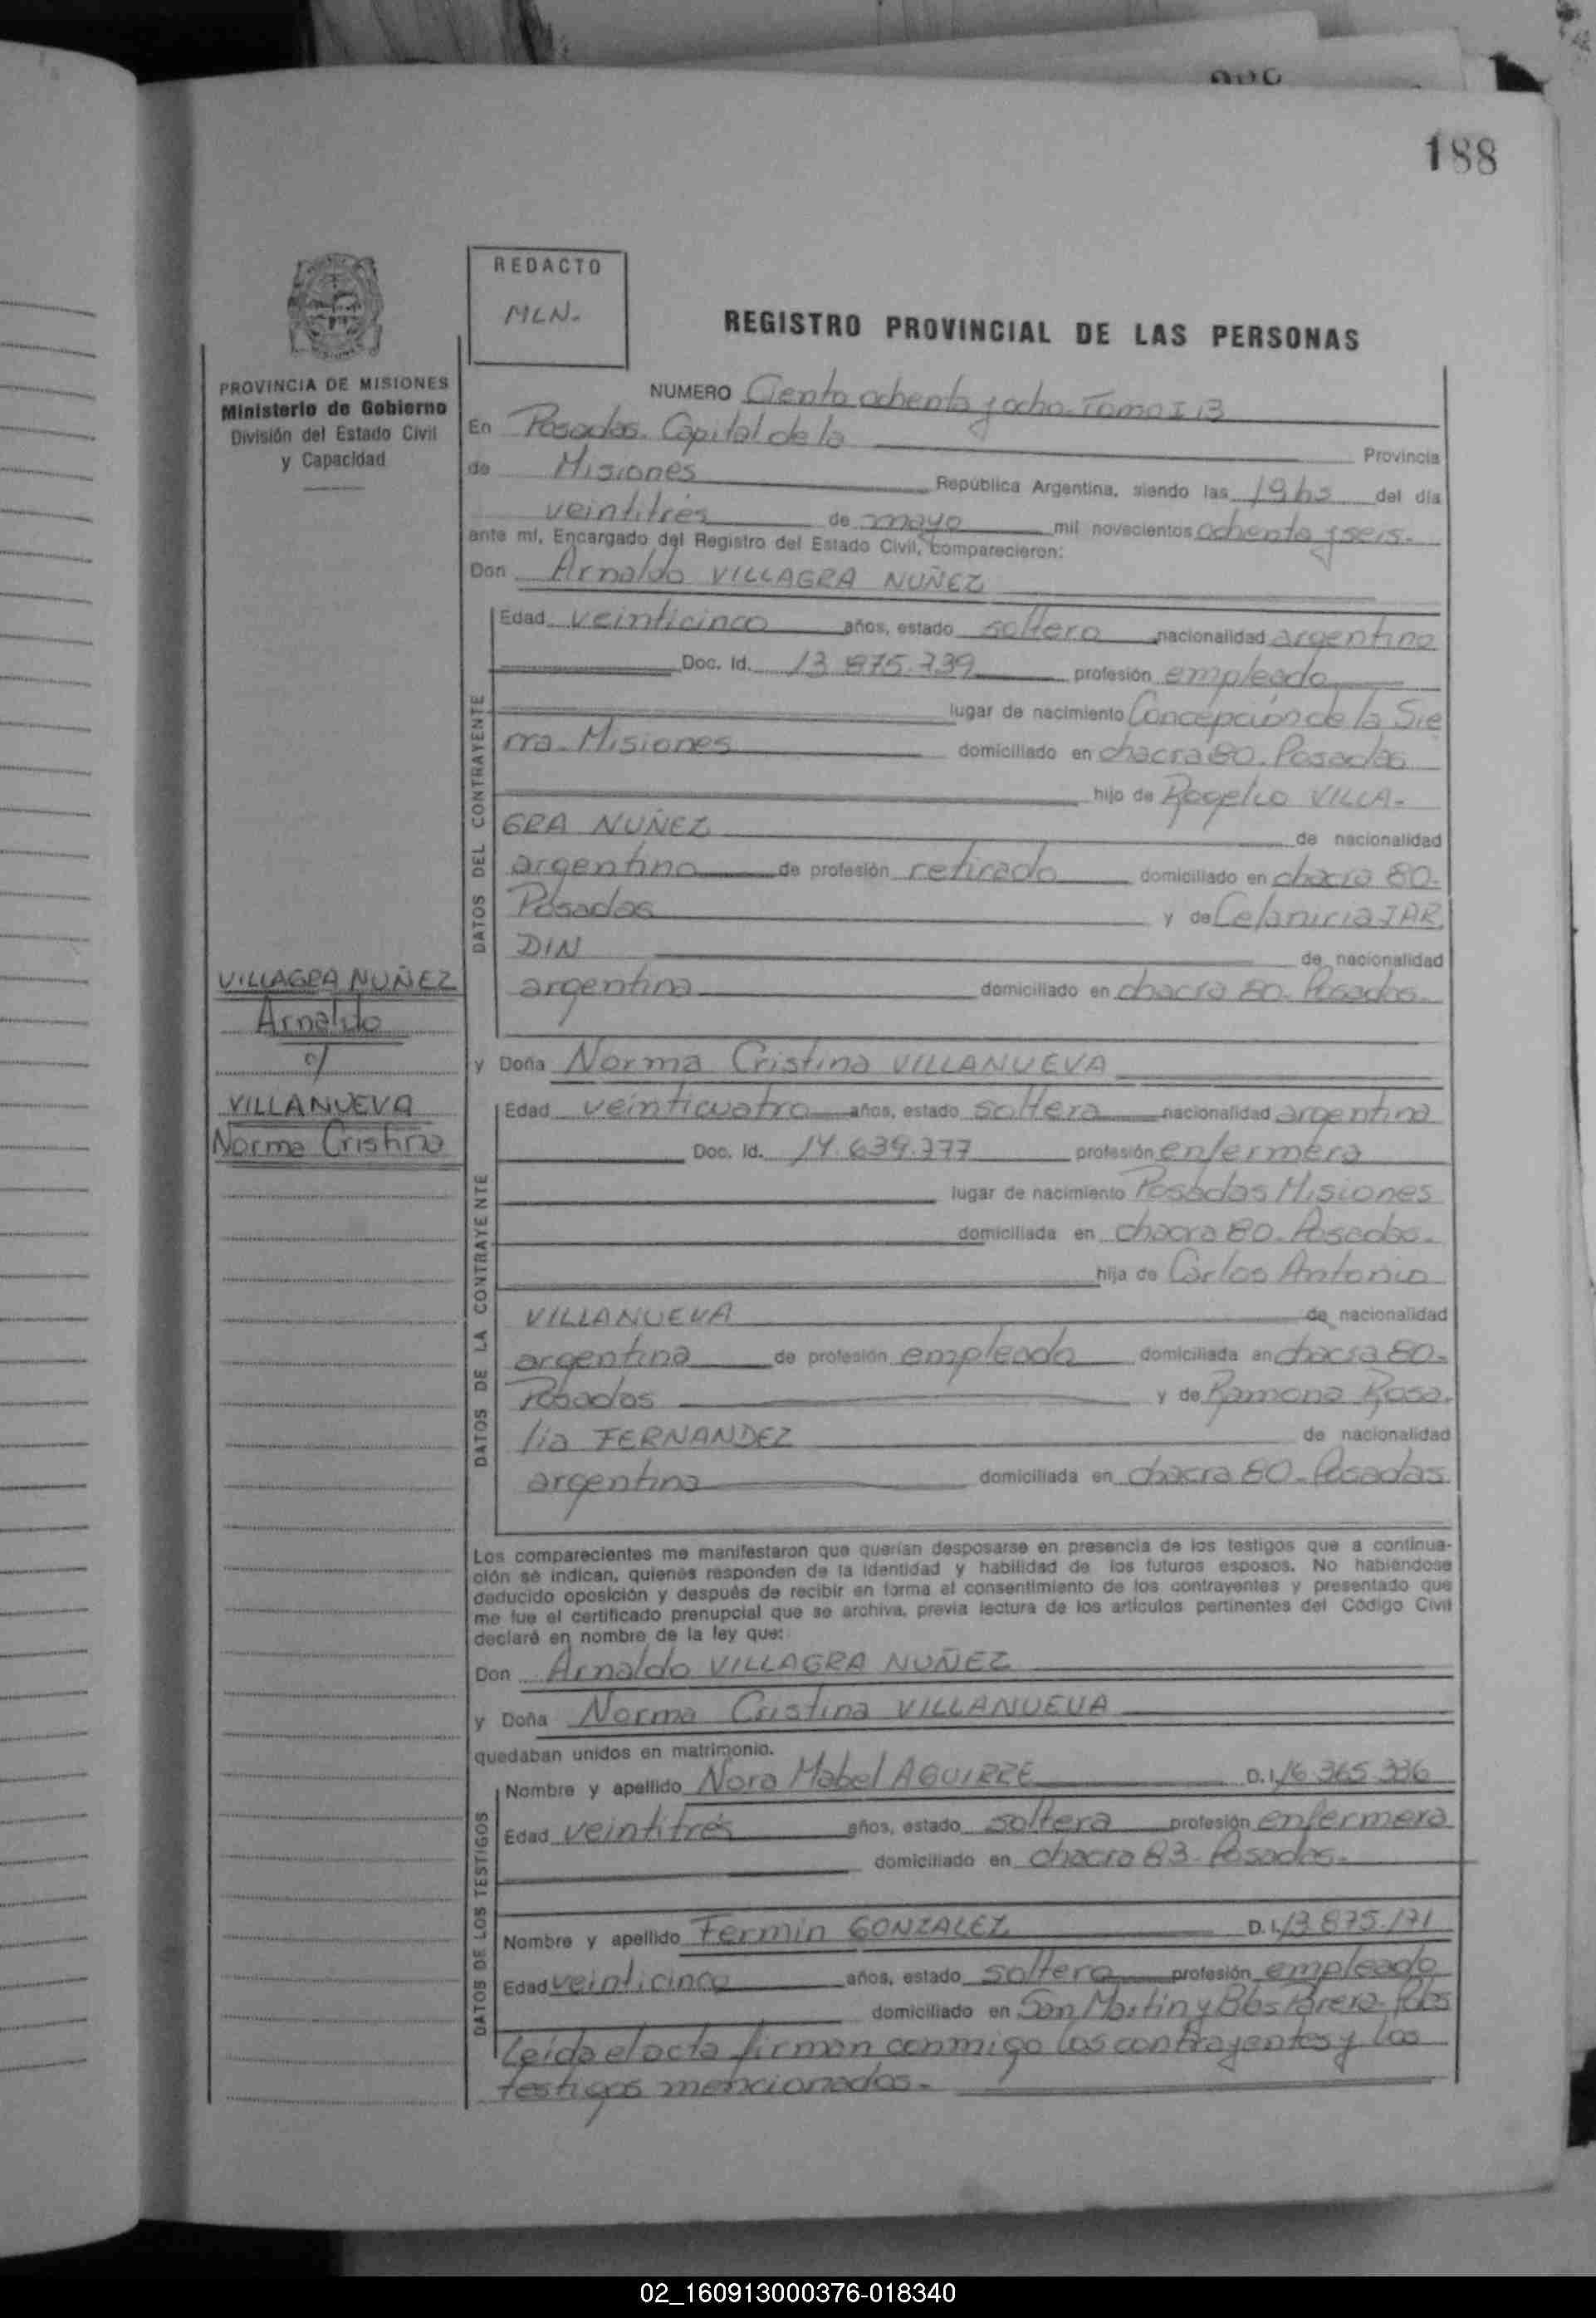 188
REDACTO
MLN.
REGISTRO PROVINCIAL DE LAS PERSONAS
PROVINCIA DE MISIONES
Ministerio de Gobierno
División del Estado Civil
y Capacidad
NUMERO Ciento ochenta y ocho. Tomo I 13
En Posadas. Capital de la Provincia
de Misiones República Argentina, siendo las 19hs del día
veintitrés de mayo mil novecientos ochenta y seis.
ante mí, Encargado del Registro del Estado Civil, comparecieron:
Don Arnaldo VILLAGRA NUÑEZ
DATOS DEL CONTRAYENTE
Edad veinticinco años, estado soltero nacionalidad argentino
Doc. Id. 13.875.739 profesión empleado
lugar de nacimiento Concepción de la Sie
rra. Misiones domiciliado en chacra 80. Posadas
hijo de Rogelio VILLA-
GRA NUÑEZ de nacionalidad
argentino de profesión retirado domiciliado en chacra 80-
Posadas y de JAR
DIN de nacionalidad
argentina domiciliado en chacra 80. Posadas.
VILLAGRA NUÑEZ
Arnaldo
c/
VILLANUEVA
Norma Cristina
y Doña Norma Cristina VILLANUEVA
DATOS DE LA CONTRAYENTE
Edad veinticuatro años, estado soltera nacionalidad argentina
Doc. Id. 14.639.377 profesión enfermera
lugar de nacimiento Posadas Misiones
domiciliada en chacra 80. Posadas.
hija de Carlos Antonio
VILLANUEVA de nacionalidad
argentina de profesión empleado domiciliada en chacra 80-
Posadas y de Ramona Rosa.
lia FERNANDEZ de nacionalidad
argentina domiciliada en chacra 80. Posadas
Los comparecientes me manifestaron que querían desposarse en presencia de los testigos que a continua-
ción se indican, quienes responden de la identidad y habilidad de los futuros esposos. No habiéndose
deducido oposición y después de recibir en forma el consentimiento de los contrayentes y presentado que
me fue el certificado prenupcial que se archiva, previa lectura de los artículos pertinentes del Código Civil
declaré en nombre de la ley que:
Don Arnaldo VILLAGRA NUÑEZ
y Doña Norma Cristina VILLANUEVA
quedaban unidos en matrimonio.
DATOS DE LOS TESTIGOS
Nombre y apellido Nora Mabel AGUIRRE D.I. 16.365.336
Edad veintitrés años, estado soltera profesión enfermera
domiciliado en chacra 83. Posadas.
Nombre y apellido Fermin GONZALEZ D.I. 13.875.171
Edad veinticinco años, estado soltero profesión empleado
domiciliado en San Martin y Bbs Parera. Pdas
Leída el acta firman conmigo los contrayentes y los
testigos mencionados.
02_160913000376-018340